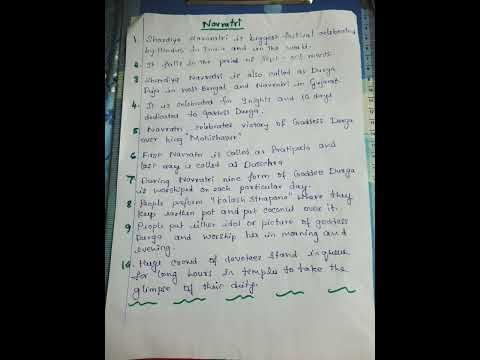 Navratri
1. Shardiya Navratri is biggest festival celebrated
by Hindus in India and in the world.
2. It falls in the period of Sept - oct month
3. Shardiya Navratri is also called as Durga
Puja in west Bengal and Navratri in Gujarat
4. It is celebrated for 9 nights and 10 days
dedicated to goddess Durga.
5 Navratri celebrates victory of Goddess Durga
over king "Mahishasur"
6 First Navratri is called as Pratipada and
last day is called as Dasehra
7. During Navratri nine form of Goddess Durga
is worshiped on each particular day.
8 People preform "Kalash Strapana" where they
keep earthen pot and put coconut over it.
9 People put either idol or picture of goddess
Durga and worship her in morning and
evening.
10. Huge crowd of devotees stand in queue
for long hours in temples to take the
glimpse of their deity.